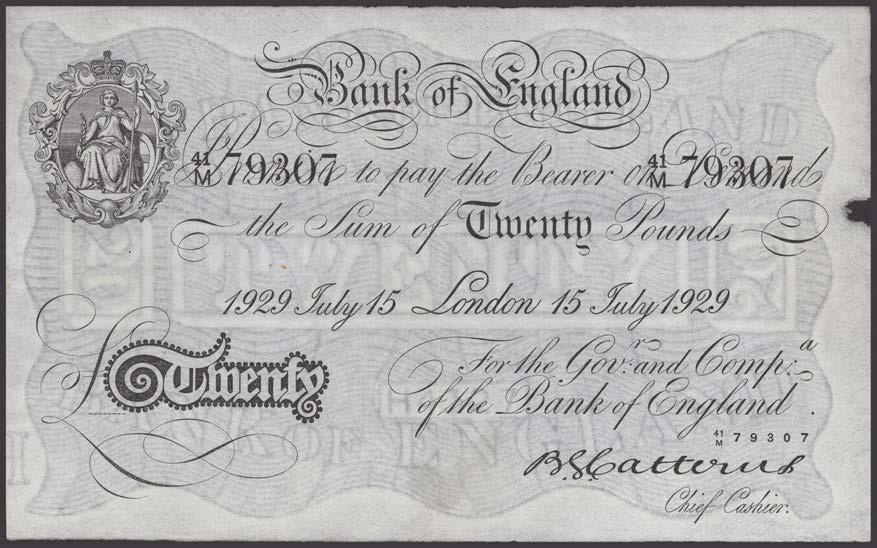 Bank of England
I Promise to pay the Bearer on Demand
41/M 79307 41/M 79307
the Sum of Twenty Pounds
1929 July 15 London 15 July 1929
£Twenty
For the Gov.r and Comp.a
of the Bank of England.
41/M 79307
B G Catterns
Chief Cashier.